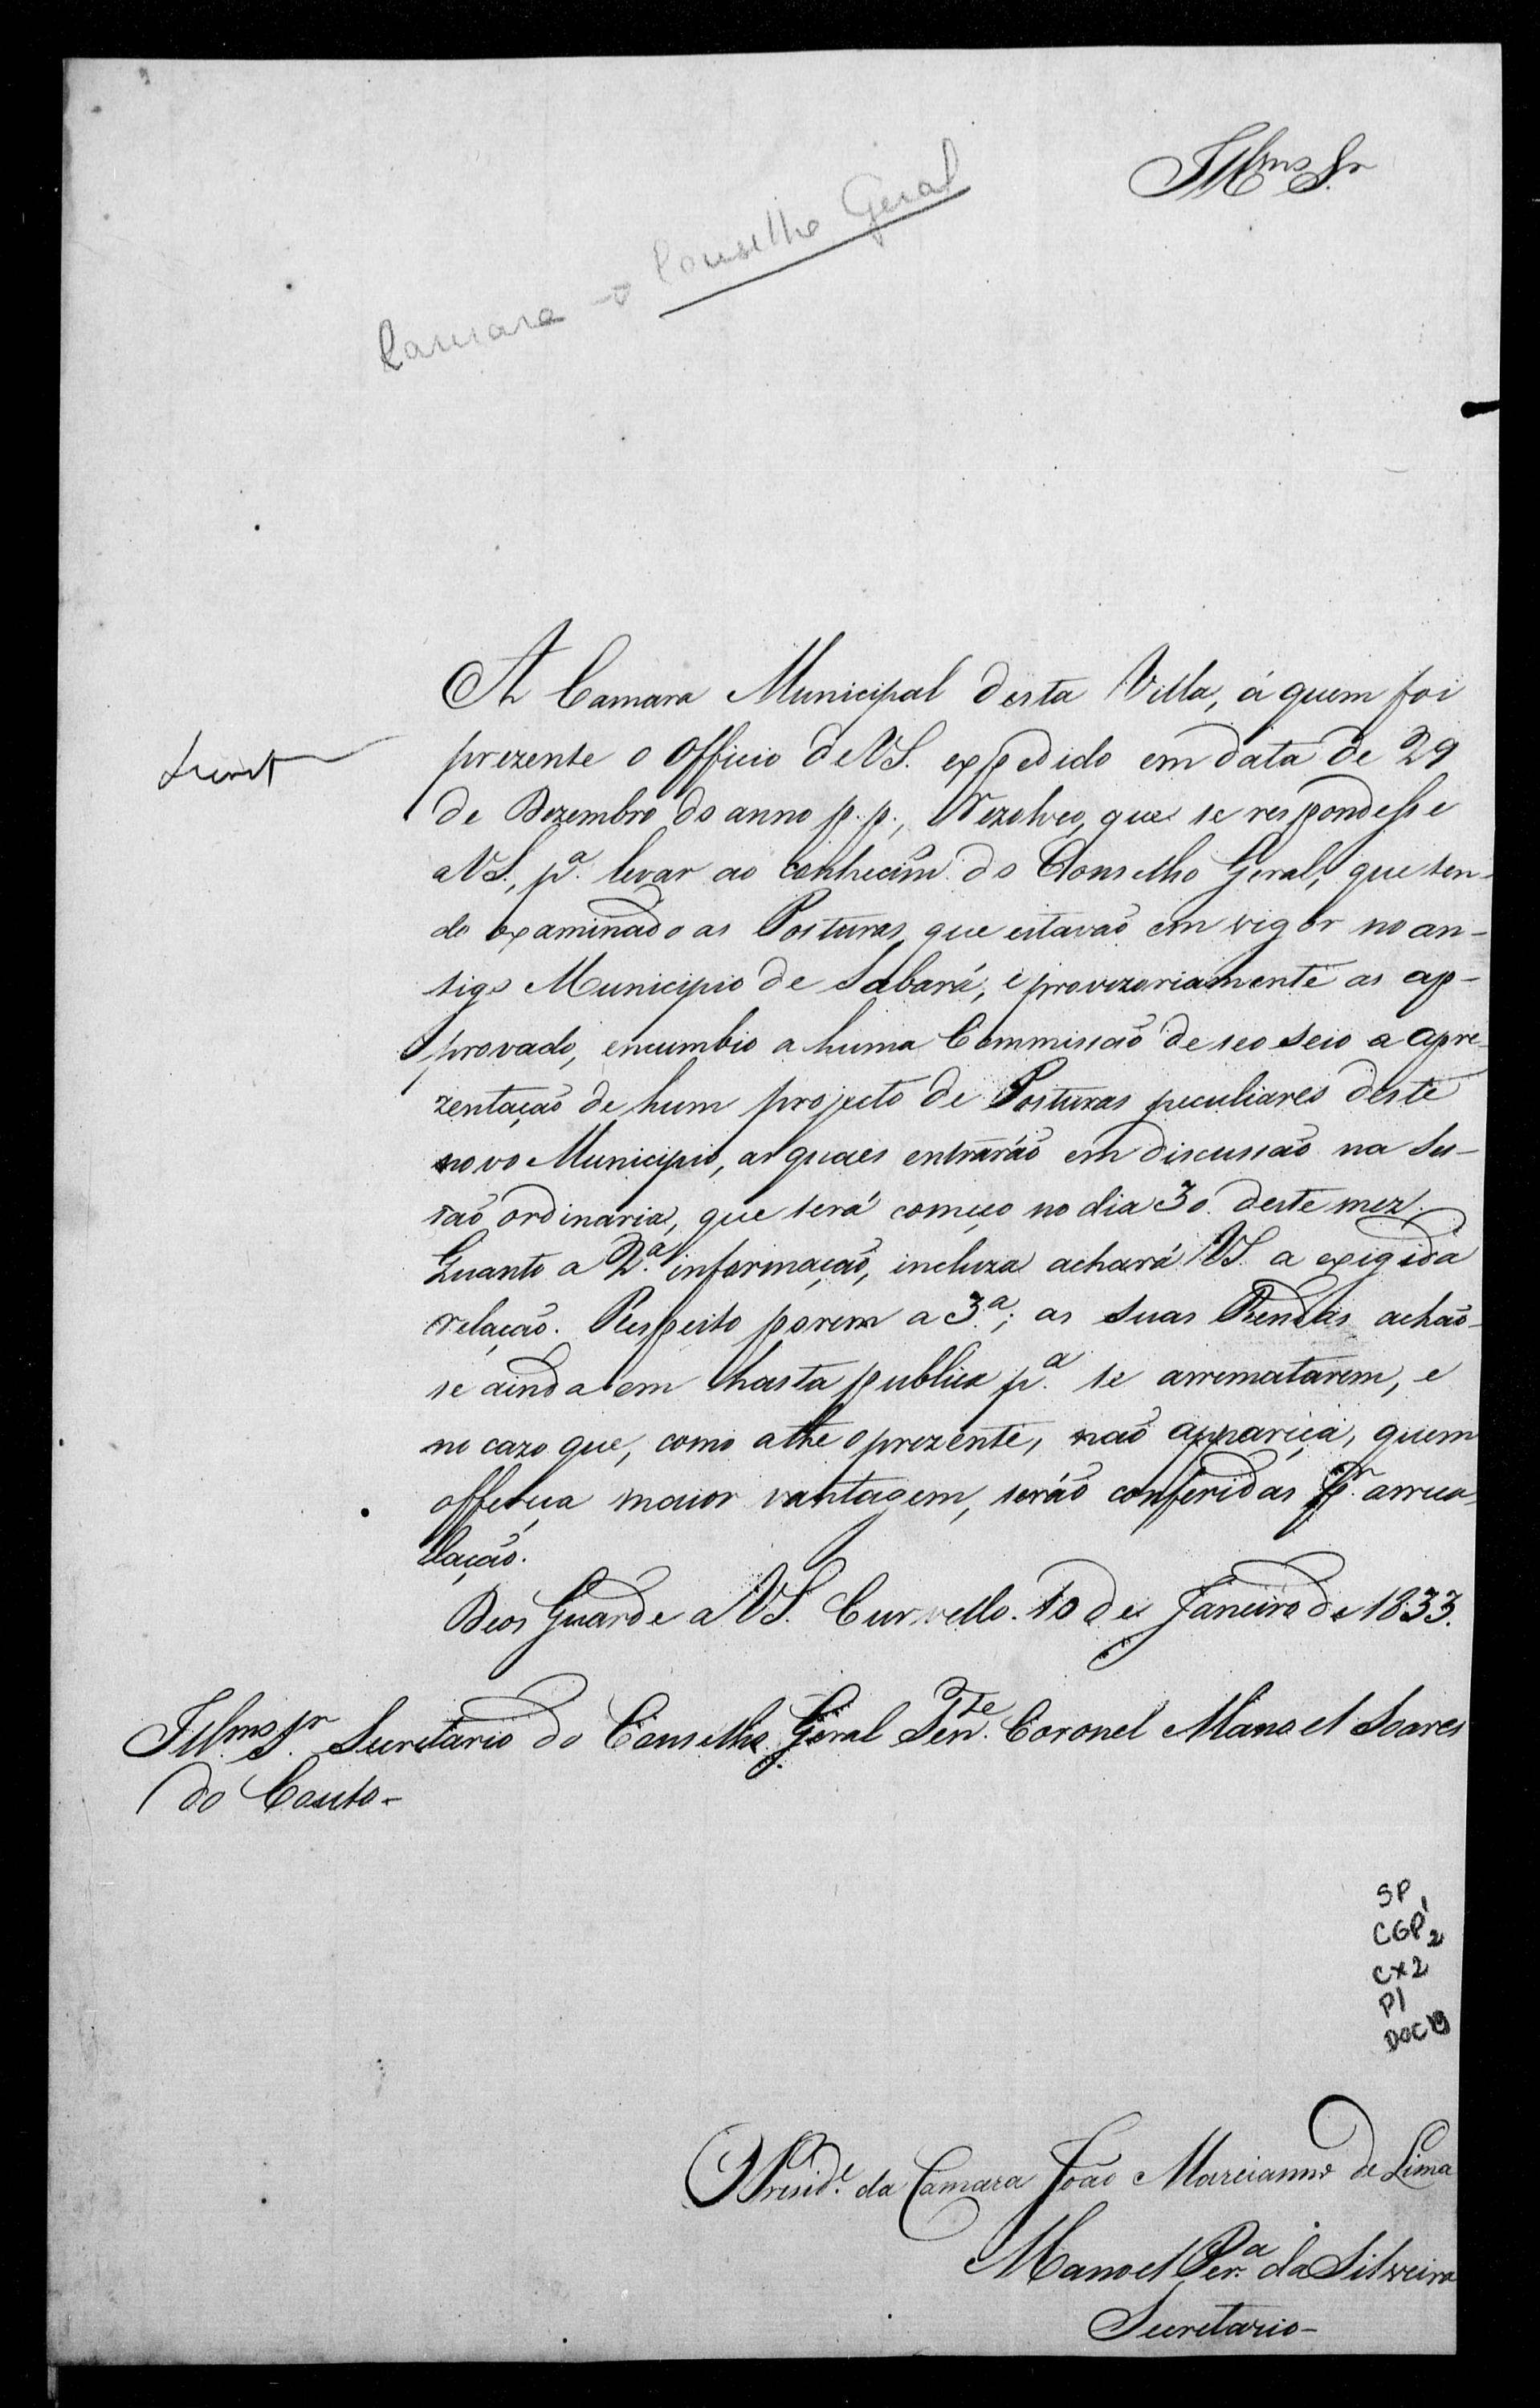 Illmo Sr.
Camara → Conselho Geral
A Camara Municipal desta Villa, á quem foi
prezente o Officio de V.S. expedido em data de 29
de Dezembro do anno p.p., Rezolveo, que se respondesse
a V.S., pa. levar ao conhecim.to do Conselho Geral, que ten-
do examinado as Posturas, que estavão em vigor no an-
tigo Municipio de Sabará, e provizoriamente as ap-
provado, encumbio a huma Commissão de seo seio a apre-
zentação de hum projecto de Posturas peculiares deste
novo Municipio, as quaes entrarão em discussão na Ses-
são ordinaria, que terá começo no dia 30 deste mez.
Quanto a 2.a informação, incluza achará V.S. a exigida
relação. Respeito porem a 3.a; as suas Rendas achão-
se ainda em hasta publica pa. se arrematarem, e
no cazo que, como athe o prezente, não appareça, quem
offereça maior vantagem, serão conferidas pr. arreca-
dação.
Deos Guarde a V.S. Curvello. 10 de Janeiro de 1833.
Illmo Sr. Secretario do Conselho Geral Ten.te Coronel Manoel Soares
do Couto-
SP 1
CGP 2
CX 2
P1
DOC 19
O Presid.e da Camara João Marcianno de Lima
Manoel Per.a da Silveira
Secretario-